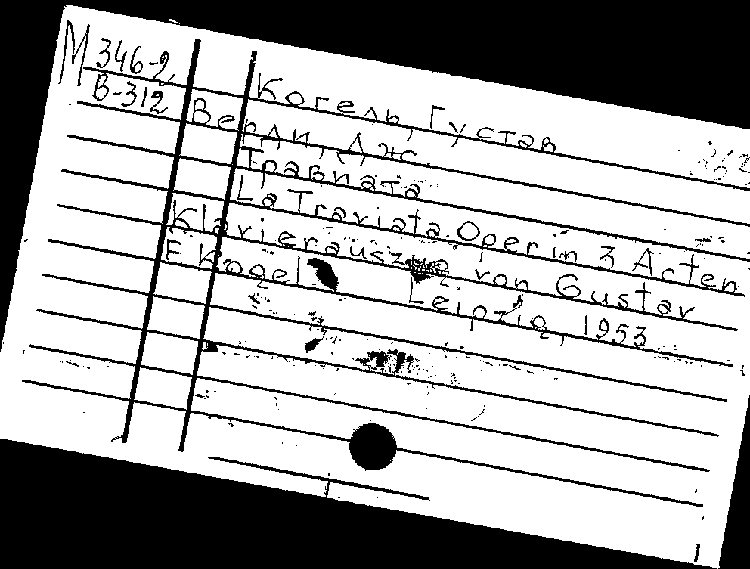 М 346-2
В-312
Когель, Густав
Верди, Дж.
Травиата
La Traviata. Oper in 3 Arten
Klavierauszug von Gustav
F. Kogel Leipzig, 1953